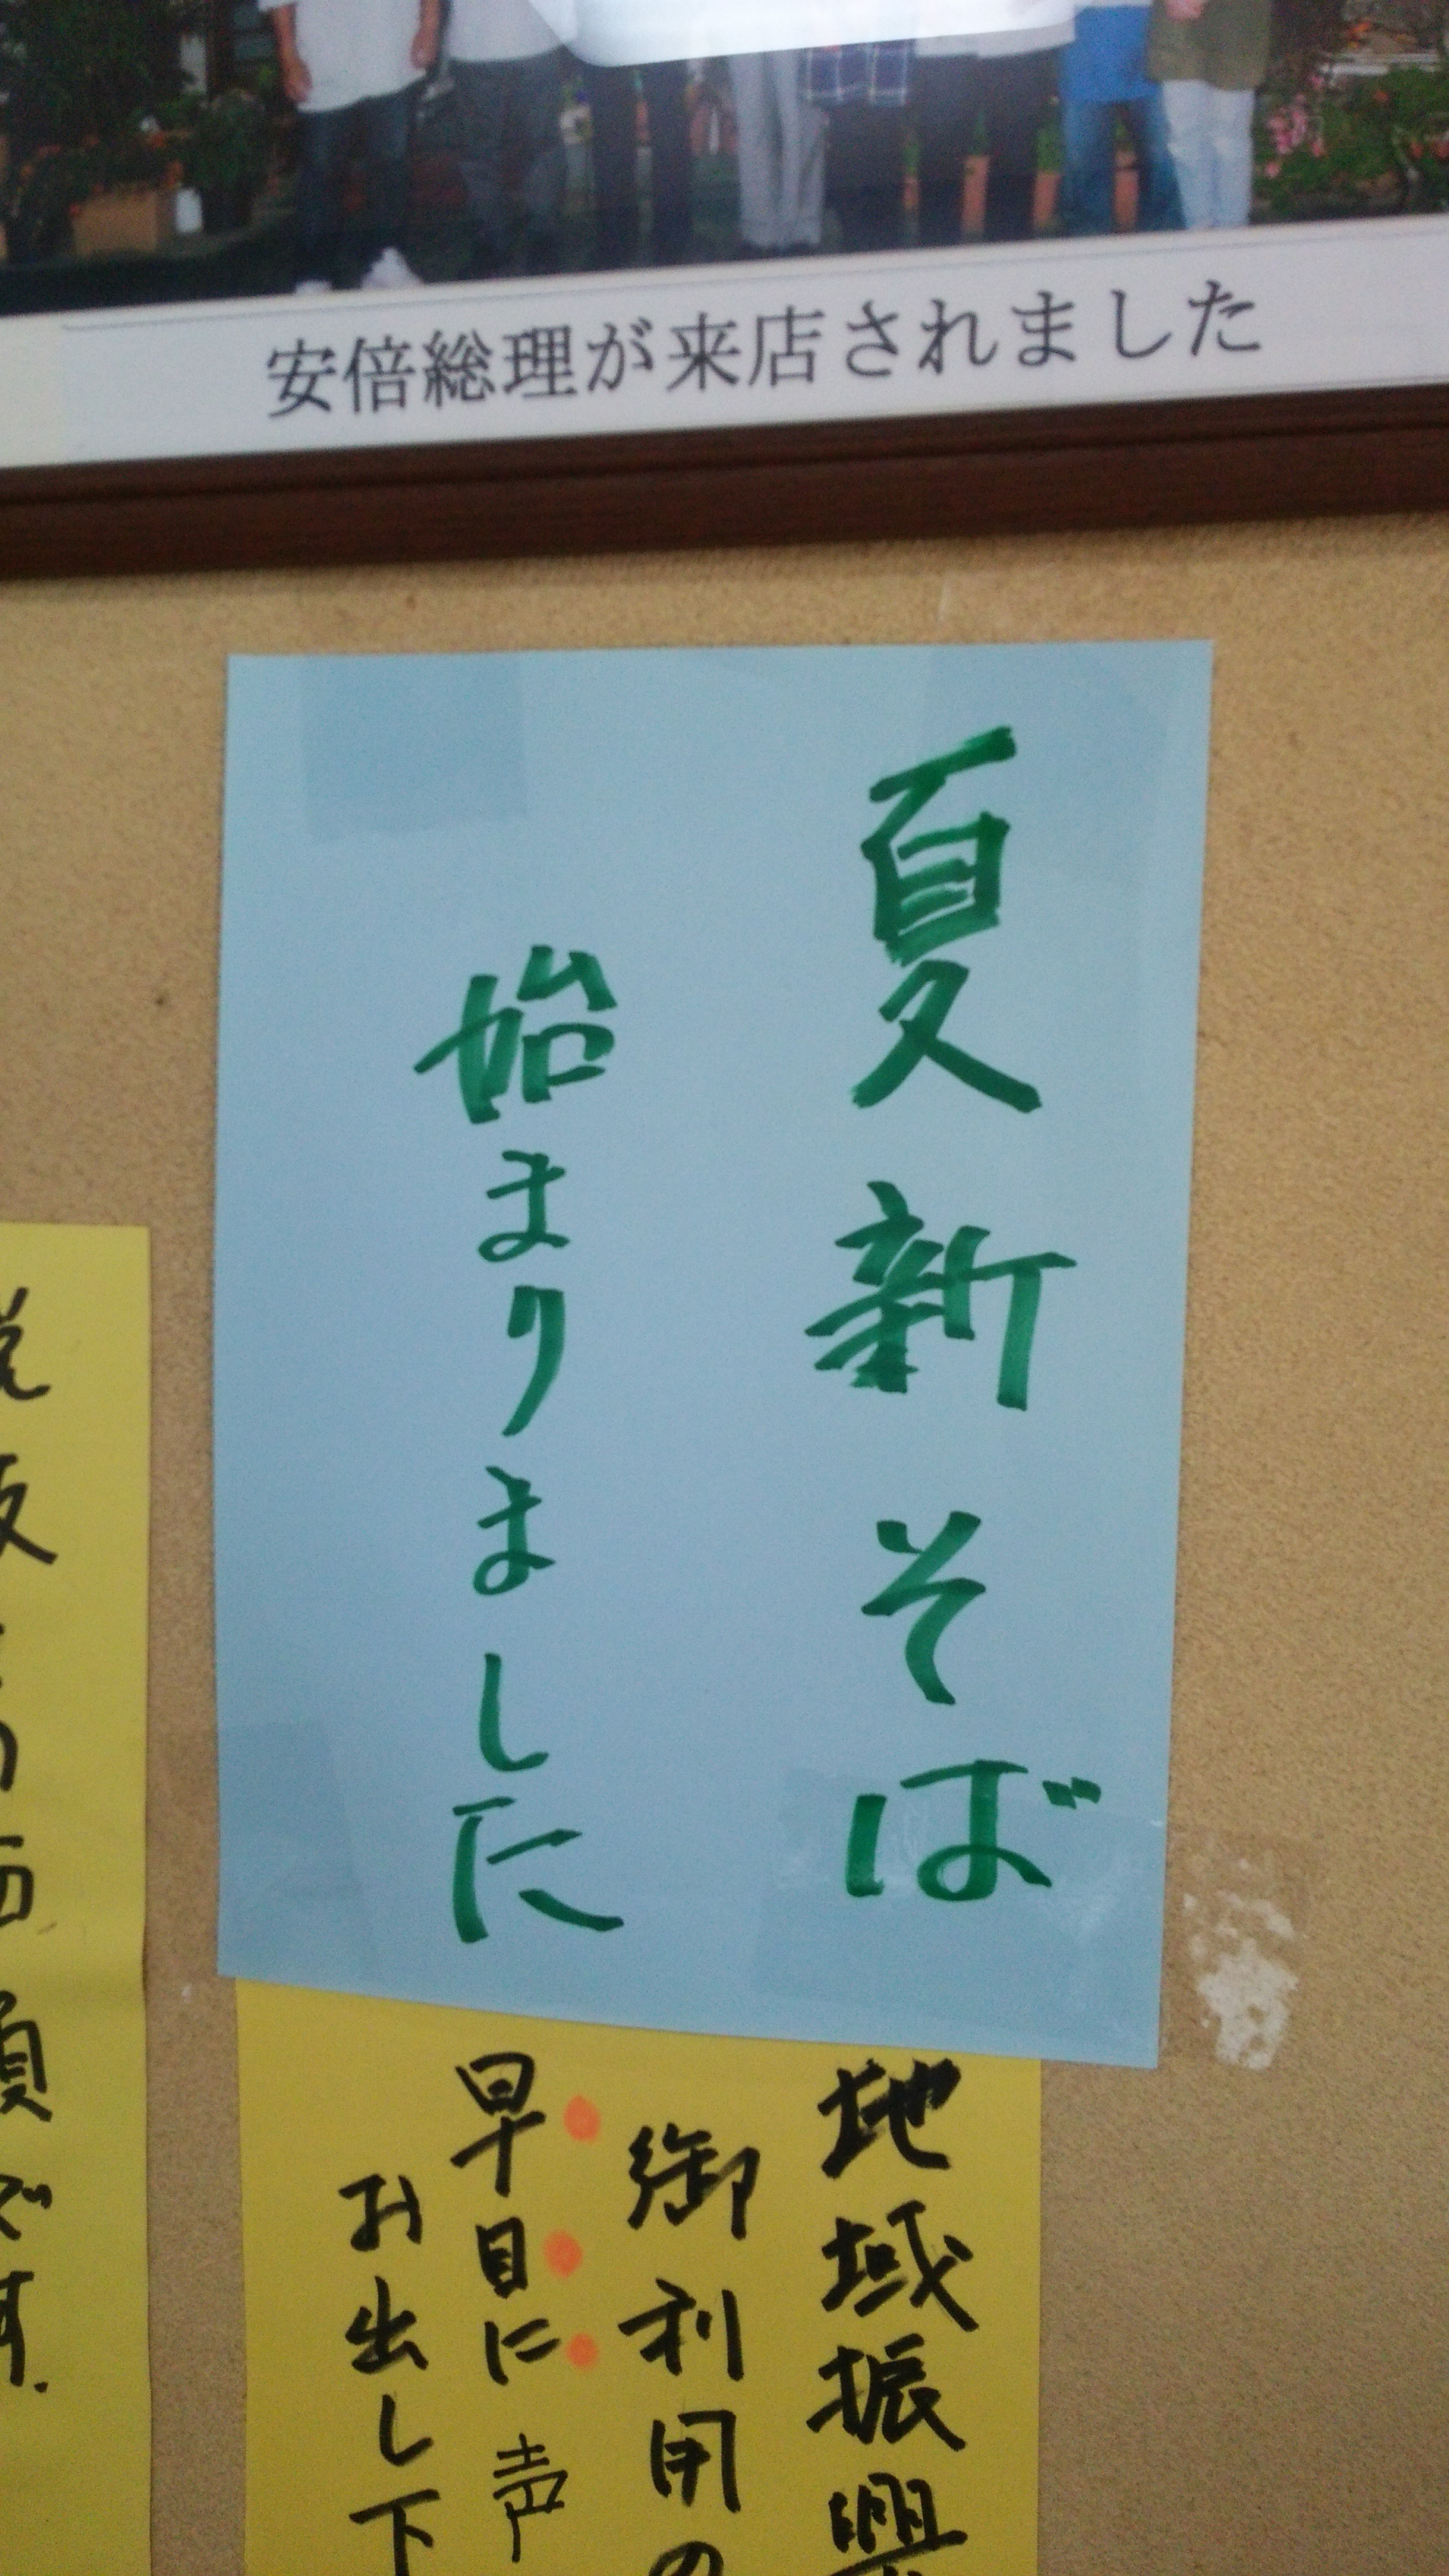 安倍総理が来店されました
夏新そば
始まりました
地域振興
御利用の
早目に声
お出し下